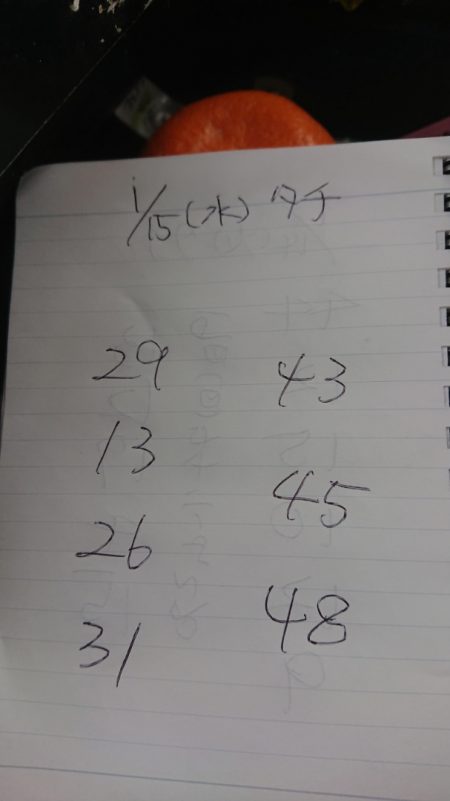 1/15(水)
29
13
26
31
43
45
48